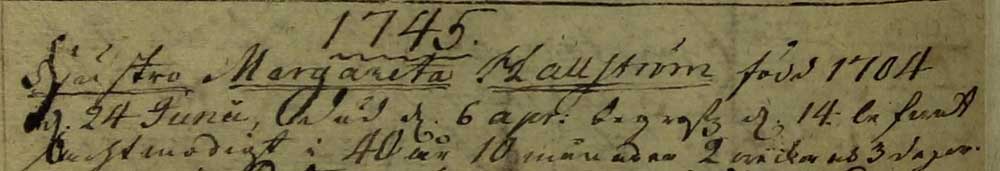 1745.
Hustro Margareta Kallström född 1704
d. 24 Junii, död d. 6 apr: begrofz d. 14: lefwat
sachtmodigt i 40 åhr 10 månader 2 weckor och 3 dagar.